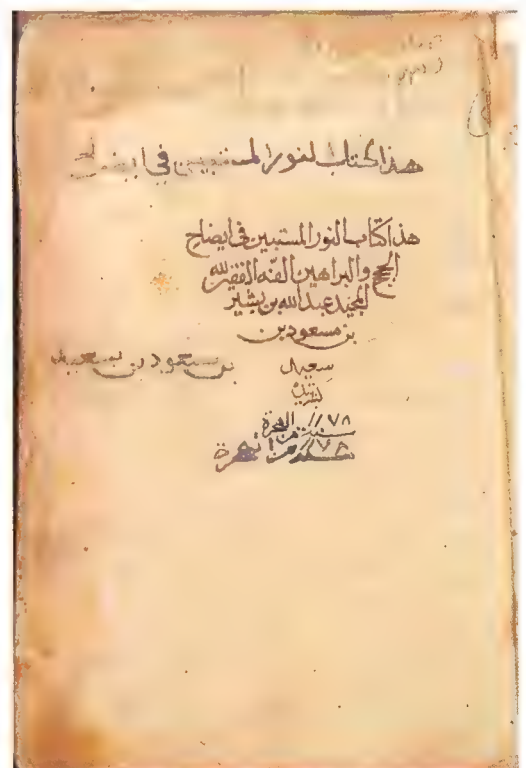 هذا كتاب لنور المستبين في
هذا كتاب النور المستبين في ايضاح
الحجج والبراهين الفه الفقير لله
المجيد عبدالله بن بشير
بن مسعود بن
سعيد بن سعود بن سعيد
سنة ١١٧٨ من الهجرة
من الهجرة